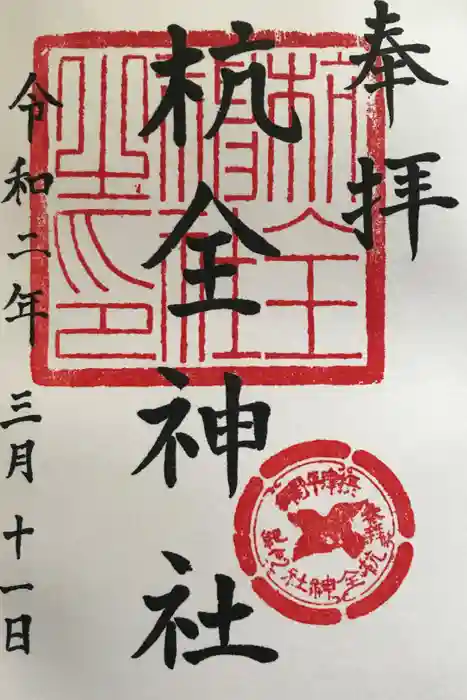 奉拝
杭全神社
令和二年 三月十一日
杭全神社之印
杭全神社